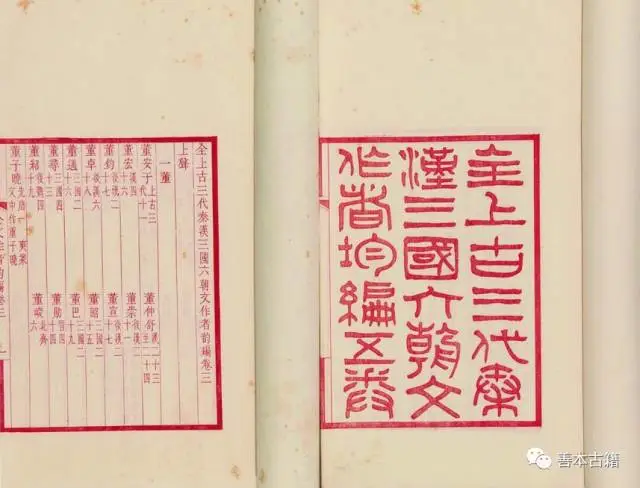 全上古三代秦
漢三國六朝文
作者均編五卷
全上古三代秦漢三國六朝文作者韵編卷三
上聲
一董
董安于 上古三代十一 董仲舒 漢二十三至二十四
董宏 漢四十六 董崇 後漢二十
董鈞 後漢二十七 董宣 後漢二十七
董卓 後漢六十八 董昭 三國二十五
董遇 三國二十六 董巴 三國二十九
董尋 三國四十三 董勛 晉四十四
董紹 後魏四十九 董峻 北齊六
善本古籍